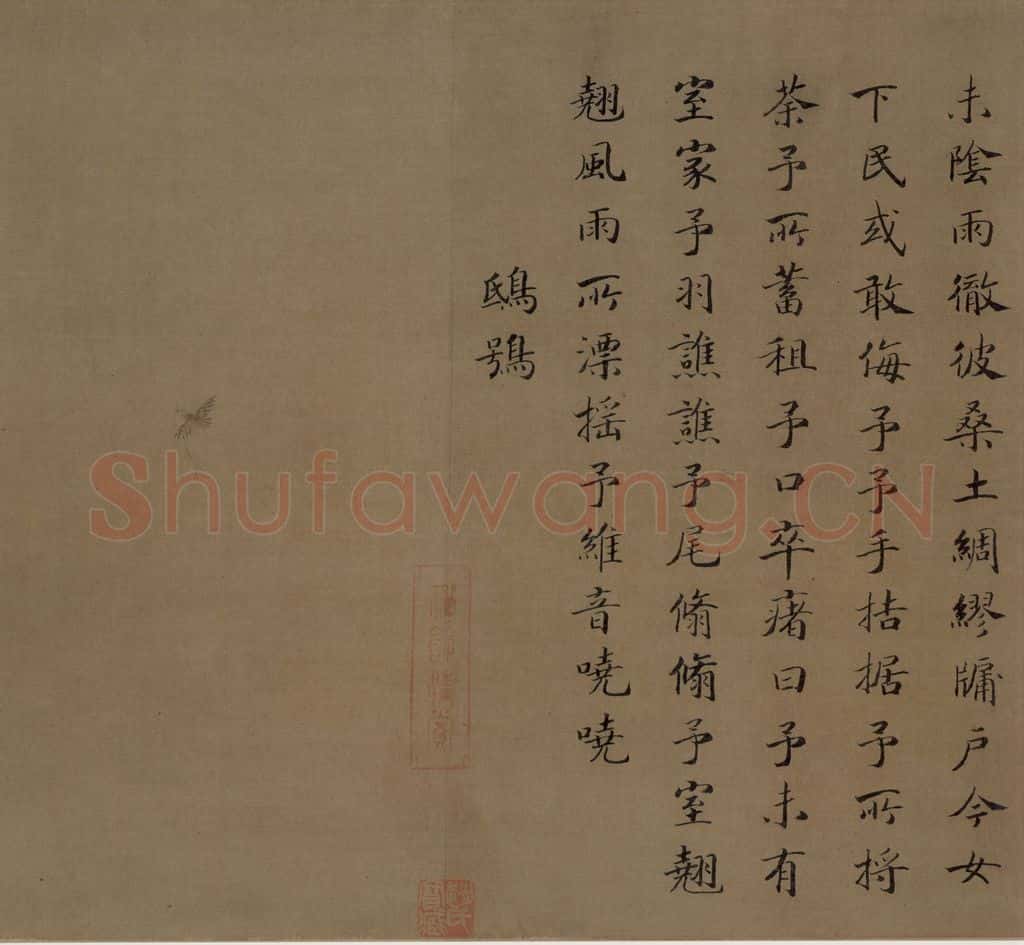 未陰雨徹彼桑土綢繆牖戶今女
下民或敢侮予予手拮据予所捋
荼予所蓄租予口卒瘏曰予未有
室家予羽譙譙予尾翛翛予室翹
翹風雨所漂摇予維音嘵嘵
鴟鴞
Shufawang.CN